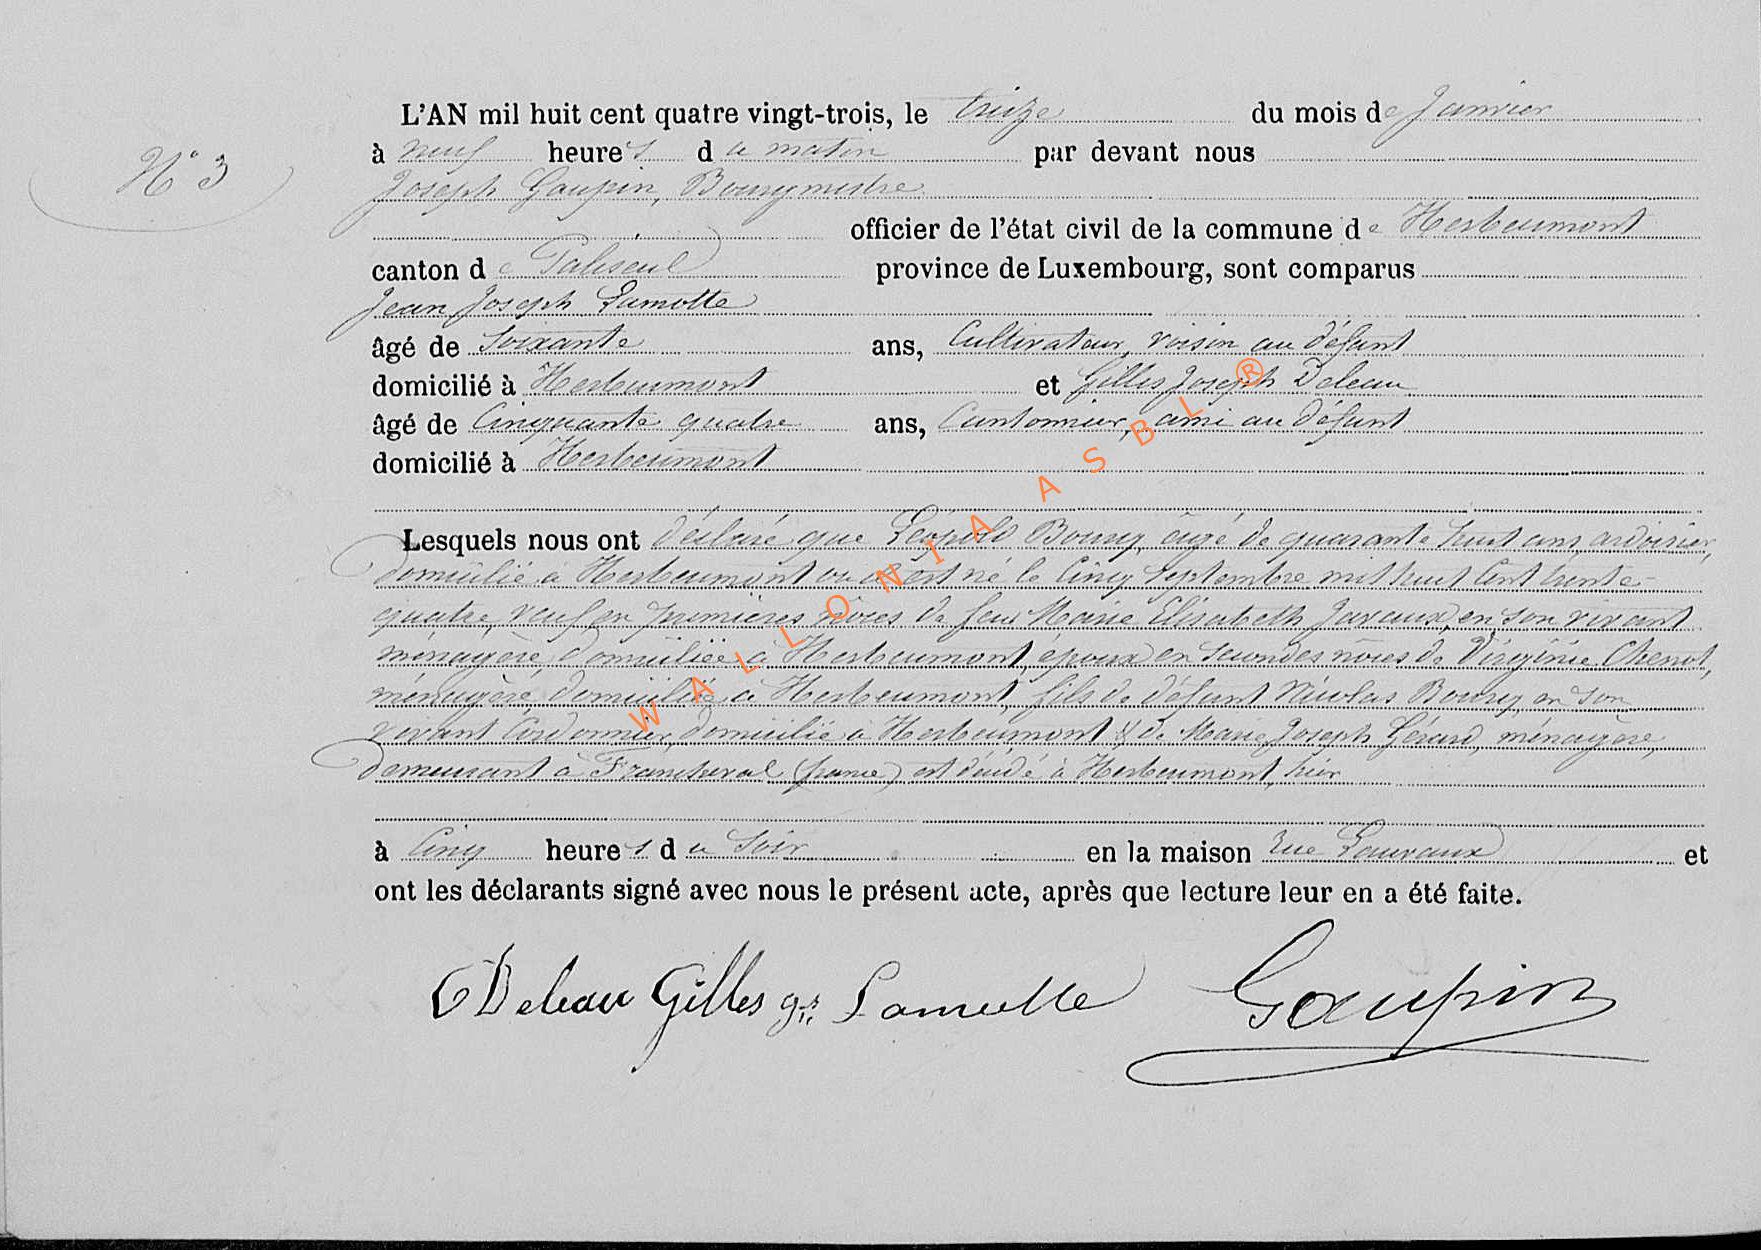 L'AN mil huit cent quatre vingt-trois, le treize du mois de Janvier
N° 3
à neuf heures du matin par devant nous
Joseph Goupin, Bourgmestre
officier de l'état civil de la commune de Herbeumont
canton de Paliseul province de Luxembourg, sont comparus
Jean Joseph Lamotte
âgé de Soixante ans, Cultivateur, voisin au défunt
domicilié à Herbeumont et Gilles Joseph Deleau
âgé de Cinquante quatre ans, Cantonnier, ami au défunt
domicilié à Herbeumont
Lesquels nous ont déclaré que Léopold Bourg, âgé de quarante huit ans, ardoisier,
domicilié à Herbeumont où il est né le Cinq Septembre mil huit Cent trente-
quatre, veuf en premières nôces de feue Marie Elisabeth Javaux, en son vivant
ménagère, domiciliée à Herbeumont, époux en secondes nôces de Virginie Chenot,
ménagère, domiciliée à Herbeumont, fils de défunt Nicolas Bourg, en son
vivant Cordonnier, domicilié à Herbeumont & de Marie Joseph Gérard, ménagère,
demeurant à Francheval (france) est décédé à Herbeumont, hier
à Cinq heures du Soir en la maison Rue Lauvaux et
ont les déclarants signé avec nous le présent acte, après que lecture leur en a été faite.
Deleau Gilles Lamotte Goupin
WALLONIA ASBL ®